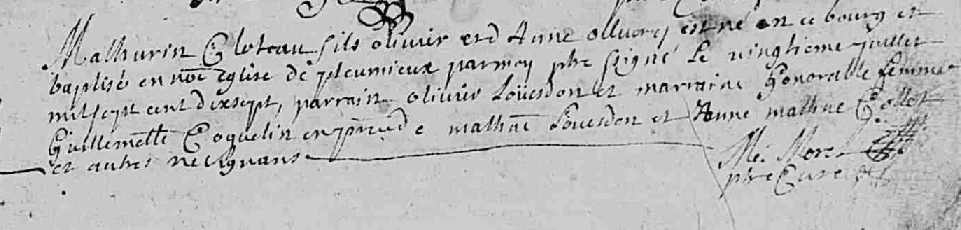 Mathurin Cloteau fils olivier et d'Anne ollivry est né en ce bourg et
baptisé en nott église de pleumieux par moy ptre signé Le vingtieme juillet
mil sept cent dixsept, parrain olivier Louesdon et marraine honorable femme
Guillemette Coquelin en pnce de mathne Louesdon et Anne mathne Collet
et autres ne signans
Me. Morel
ptre Curé